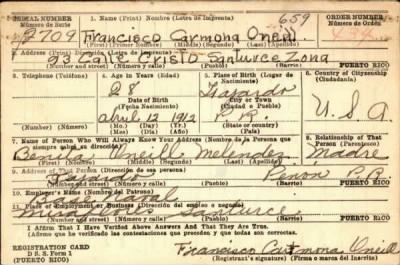 SERIAL NUMBER
Número de Serie
2709
1. Name (Print) Nombre (Letra de Imprenta)
Francisco Carmona Oneill
(First) (Primer Nombre) (Middle) (Segundo) (Last) (Apellido)
659
ORDER NUMBER
Número de Orden
2. Address (Print) Dirección (Letra de Imprenta)
93 Calle Cristo Santurce Zona
(Number and street) (Número y calle) (Town) (Pueblo) PUERTO RICO
3. Telephone (Teléfono)
4. Age in Years (Edad)
28
5. Place of Birth (Lugar de Nacimiento)
Fajardo
6. Country of Citizenship
(Ciudadanía)
Date of Birth
(Fecha Nacimiento)
City or Town
(Ciudad o Pueblo)
April 12 1912
P. R.
U. S. A.
(Number) (Número)
7. Name of Person Who Will Always Know Your Address (Nombre de la Persona que
siempre sabrá su dirección)
Oneill
8. Relationship of That
Person (Parentesco)
Madre
9. Address of That Person (Dirección de esa persona)
Fajardo P.R.
(Number and street) (Número y calle) (Town) (Pueblo)
10. Employer's Name (Nombre del Patrono)
Naval
11. Place of Employment or Business (Dirección del empleo o negocio)
(Number and street) (Número y calle) (Town) (Pueblo) PUERTO RICO
I Affirm That I Have Verified Above Answers And That They Are True.
(Afirmo que he verificado las contestaciones que preceden y que todas son correctas.
REGISTRATION CARD
D. S. S. Form 1
(PUERTO RICO)
Francisco Carmona Oneill
(Registrant's signature) (Firma o marca del Inscrito)